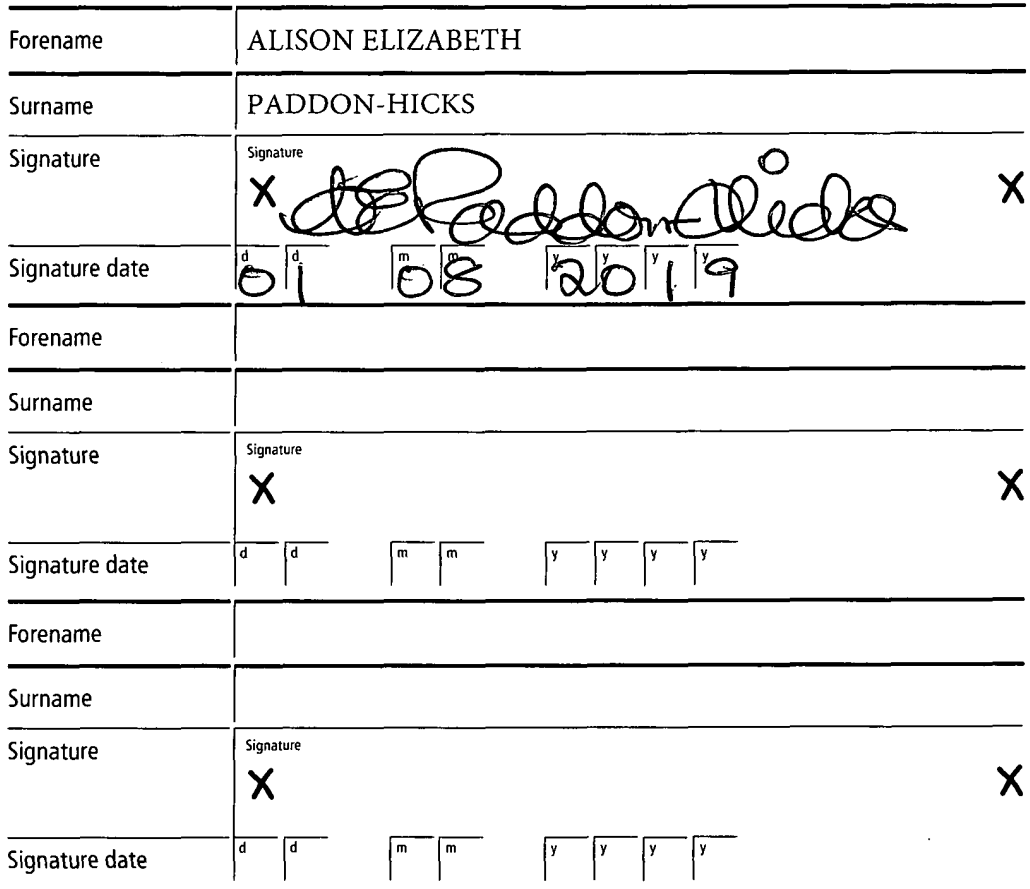 Forename ALISON ELIZABETH
Surname PADDON-HICKS
Signature Signature
X AEPaddon-Hicks X
Signature date d d m m y y y y
01 08 2019
Forename
Surname
Signature Signature
X X
Signature date d d m m y y y y
Forename
Surname
Signature Signature
X X
Signature date d d m m y y y y